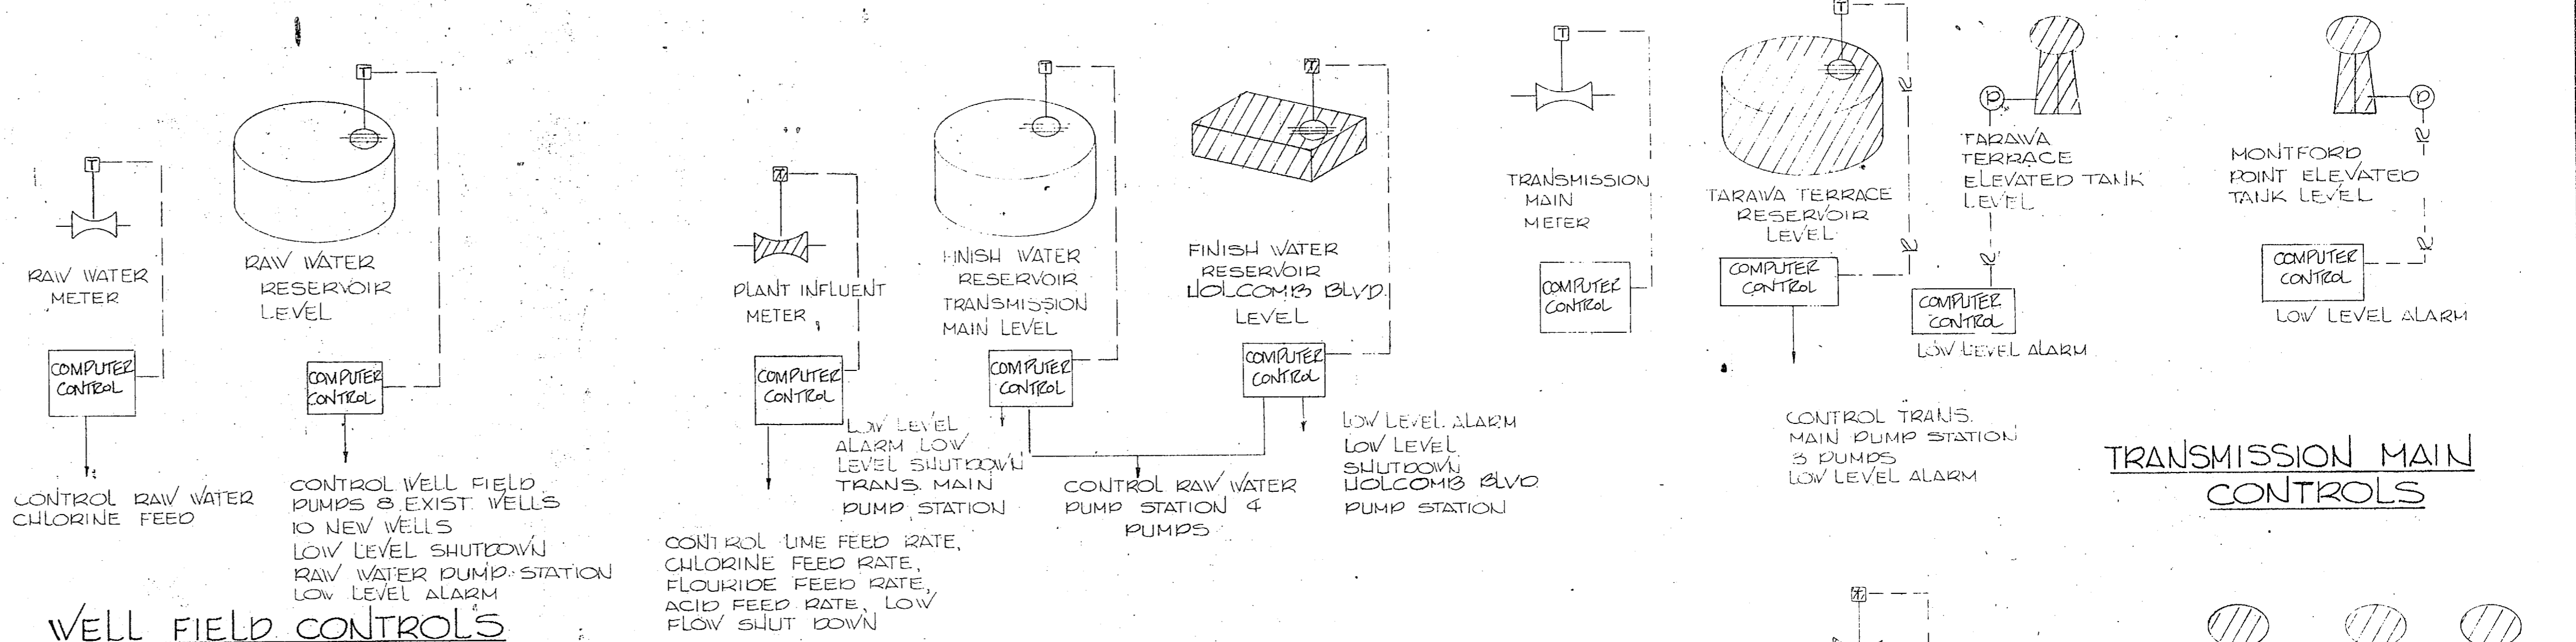 T
RAW WATER
METER
COMPUTER
CONTROL
CONTROL RAW WATER
CHLORINE FEED
T
RAW WATER
RESERVOIR
LEVEL
COMPUTER
CONTROL
CONTROL WELL FIELD
PUMPS 8 EXIST. WELLS
10 NEW WELLS
LOW LEVEL SHUTDOWN
RAW WATER PUMP STATION
LOW LEVEL ALARM
WELL FIELD CONTROLS
T
PLANT INFLUENT
METER
COMPUTER
CONTROL
CONTROL LIME FEED RATE,
CHLORINE FEED RATE,
FLOURIDE FEED RATE,
ACID FEED RATE, LOW
FLOW SHUT DOWN
T
FINISH WATER
RESERVOIR
TRANSMISSION
MAIN LEVEL
COMPUTER
CONTROL
LOW LEVEL
ALARM LOW
LEVEL SHUTDOWN
TRANS. MAIN
PUMP STATION
CONTROL RAW WATER
PUMP STATION 4
PUMPS
T
FINISH WATER
RESERVOIR
HOLCOMB BLVD.
LEVEL
COMPUTER
CONTROL
LOW LEVEL ALARM
LOW LEVEL
SHUTDOWN
HOLCOMB BLVD.
PUMP STATION
T
TRANSMISSION
MAIN
METER
COMPUTER
CONTROL
T
R
TARAWA TERRACE
RESERVOIR
LEVEL
R
COMPUTER
CONTROL
CONTROL TRANS.
MAIN PUMP STATION
3 PUMPS
LOW LEVEL ALARM
P
TARAWA
TERRACE
ELEVATED TANK
LEVEL
R
COMPUTER
CONTROL
LOW LEVEL ALARM
P
R
MONTFORD
POINT ELEVATED
TANK LEVEL
R
COMPUTER
CONTROL
LOW LEVEL ALARM
TRANSMISSION MAIN
CONTROLS
T